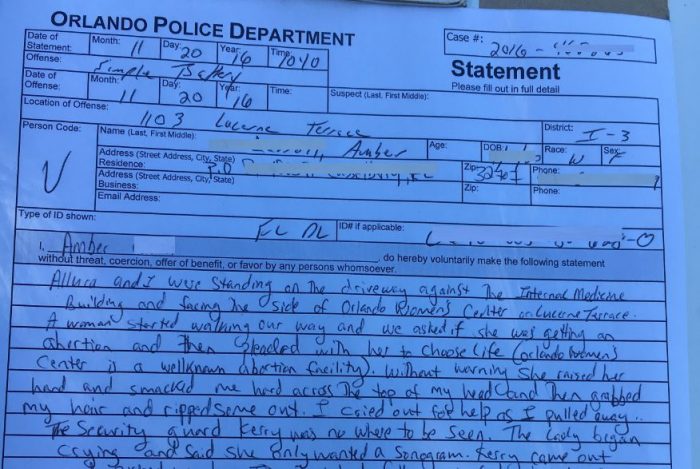 ORLANDO POLICE DEPARTMENT
Case #: 2016 -
Statement
Please fill out in full detail
Date of Statement: Month: 11 Day: 20 Year: 16 Time: 1040
Offense: Simple Battery
Date of Offense: Month: 11 Day: 20 Year: 16 Time:
Suspect (Last, First Middle):
Location of Offense: 1103 Lucerne Terrace
District: I-3
Person Code: V
Name (Last, First Middle): Amber
Age:
DOB
Race: W
Sex: F
Address (Street Address, City, State)
Residence: P.O
Zip:
Phone:
Address (Street Address, City, State)
Business:
Zip:
Phone:
Email Address:
Type of ID shown: FL DL
ID# if applicable:
I, Amber , do hereby voluntarily make the following statement
without threat, coercion, offer of benefit, or favor by any persons whomsoever.
Allura and I were standing on the driveway against the Internal Medicine
Building and facing the side of Orlando Women's Center on Lucerne Terrace.
A woman started walking our way and we asked if she was getting an
abortion and then pleaded with her to choose life (Orlando Women's
Center is a wellknown abortion facility). Without warning she raised her
hand and smacked me hard across the top of my head and then grabbed
my hair and ripped some out. I cried out for help as I pulled away.
The security guard Kerry was no where to be seen. The lady began
crying and said she only wanted a sonogram. Kerry came out